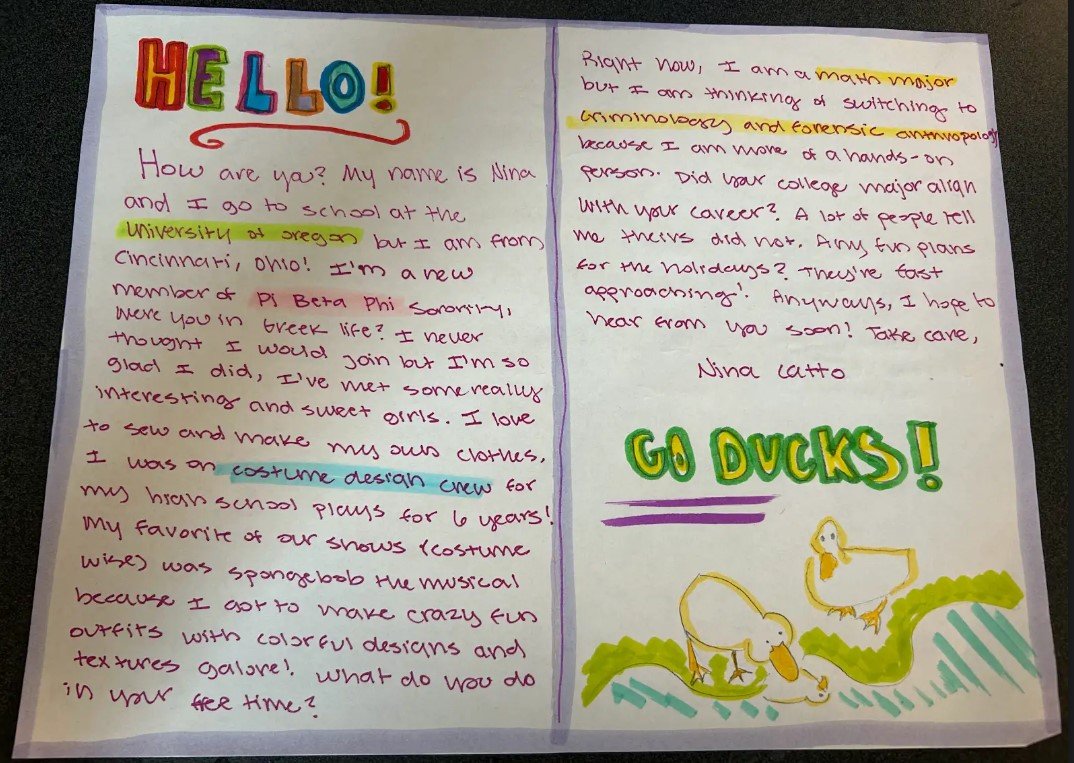 HELLO!
How are ya? My name is Nina
and I go to school at the
university of oregon but I am from
Cincinnati, Ohio! I'm a new
member of Pi Beta Phi Sorority,
Were you in Greek life? I never
thought I would join but I'm so
glad I did, I've met some really
interesting and sweet girls. I love
to sew and make my own clothes,
I was on costume design crew for
my high school plays for 6 years!
My favorite of our shows (costume
wise) was spongebob the musical
because I got to make crazy fun
outfits with colorful designs and
textures galore! What do you do
in your free time?
Right now, I am a math major
but I am thinking of switching to
criminology and forensic anthropology
because I am more of a hands-on
person. Did your college major align
with your career? A lot of people tell
me theirs did not. Any fun plans
for the holidays? They're fast
approaching! Anyways, I hope to
hear from you soon! Take care,
Nina Catto
GO DUCKS!